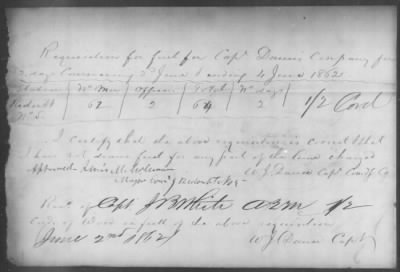 Requisition for fuel for Capt Dances Company for
2 days Commencing 3d June & ending 4 June 1862
Station | No Men | Officers | Total | No days
Redoubt | 62 | 2 | 64 | 2 | 1/2 Cord
No 5
I certify that the above requisition is correct & that
I have not drawn fuel for any part of the time charged
Approved W J Dance Capt Comdg Co
Major
Recd of Capt J B White AQM 1/2
Cords of Wood in full of the above requisition
June 2nd 1862 W J Dance Capt